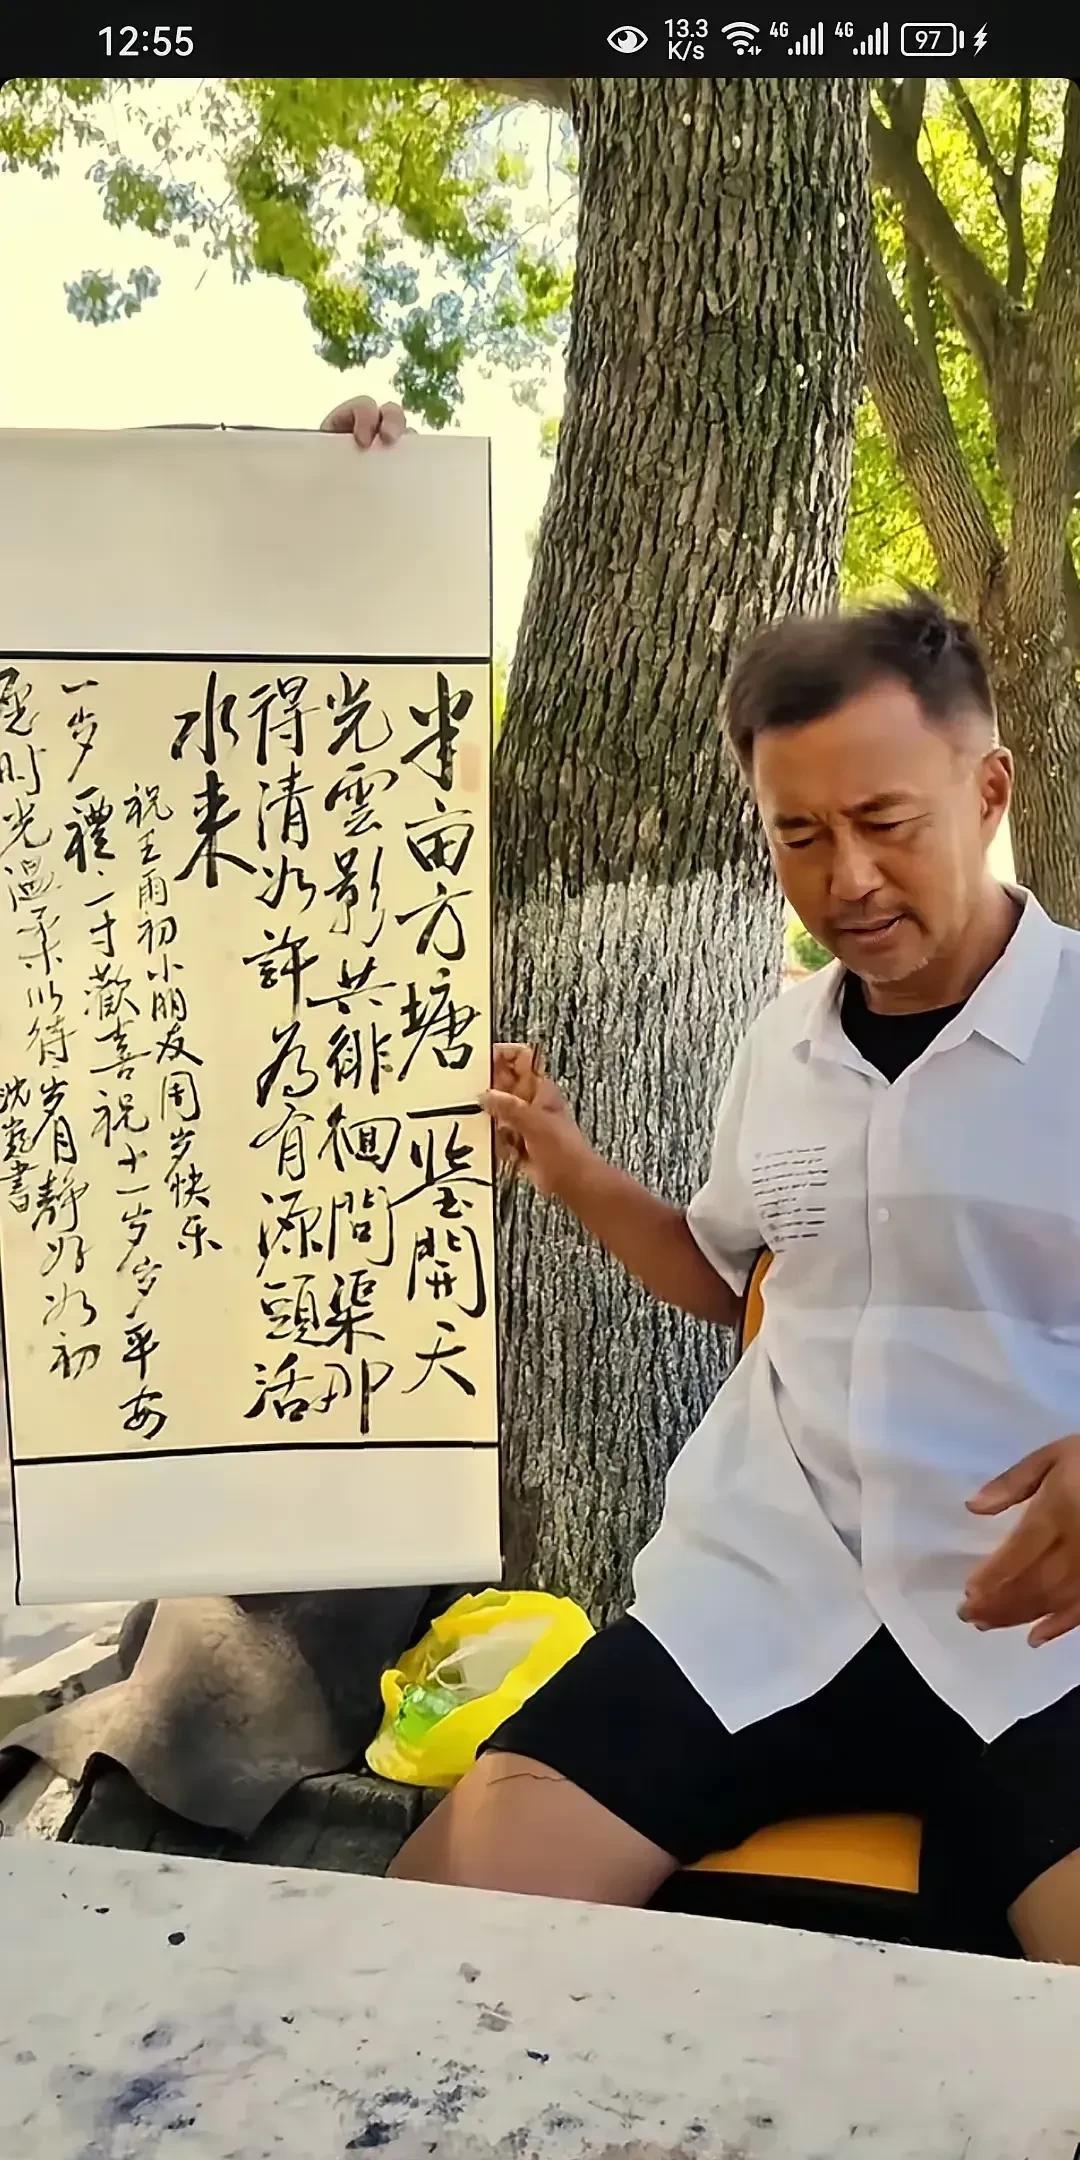 12:55
13.3 K/s 4G 4G 97
半亩方塘一鉴開天
光雲影共徘徊問渠那
得清如許為有源頭活
水来
祝王雨初小朋友周岁快乐
一岁一禮一寸歡喜祝岁岁平安
愿时光温柔以待岁月静好如初
沈書